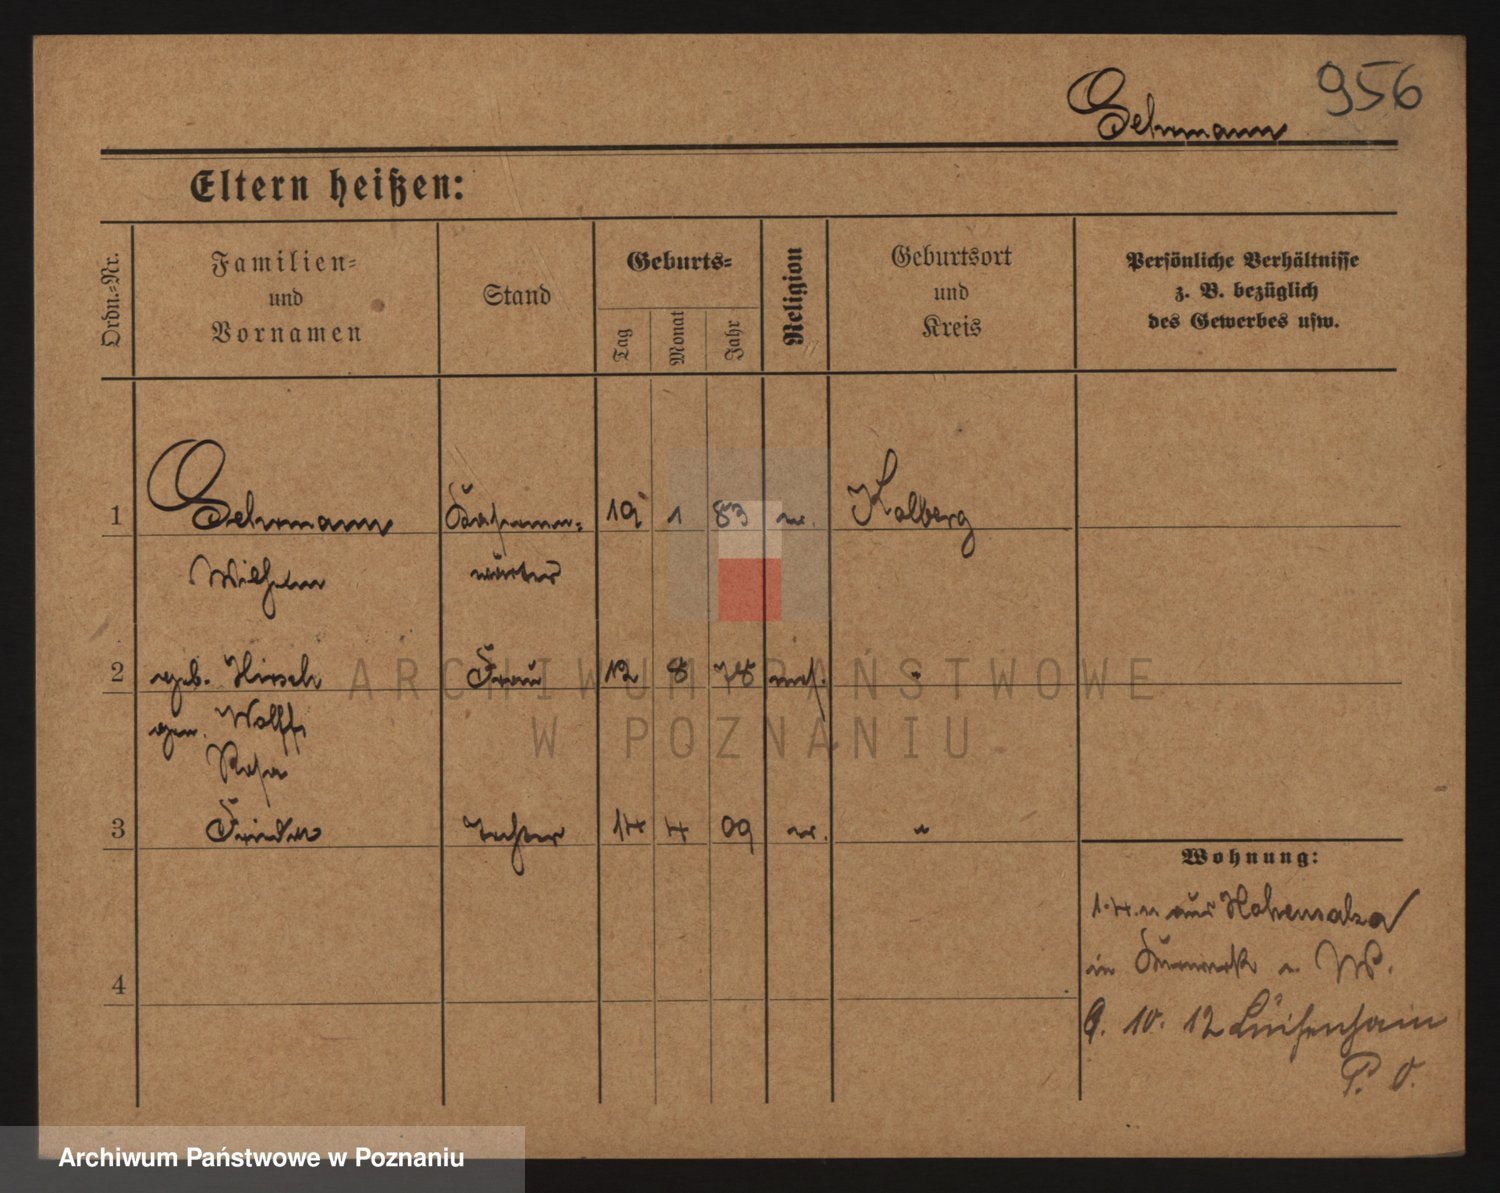 956
Gehrmann
Eltern heißen:
Ordn.=Nr.
Familien= und Vornamen
Stand
Geburts=
Tag
Monat
Jahr
Religion
Geburtsort und Kreis
Persönliche Verhältnisse
z. B. bezüglich
des Gewerbes usw.
1 Gehrmann 19 1 83 Kolberg
Wilhelm wärter
2 geb. Hirsch Frau 12 8 78 mos. "
gen. Wolff
Rosa
3 Frieda Tochter 14 4 09 "
Wohnung:
1.4.11 aus Hohensalza
in
9. 10. 12 Luisenhain
P. O.
4
ARCHIWUM PAŃSTWOWE
W POZNANIU
Archiwum Państwowe w Poznaniu